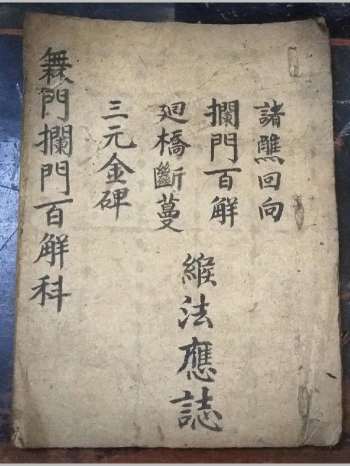 諸醮回向
攔門百解
廻橋斷蔓
三元金碑
緱法應誌
無門攔門百解科